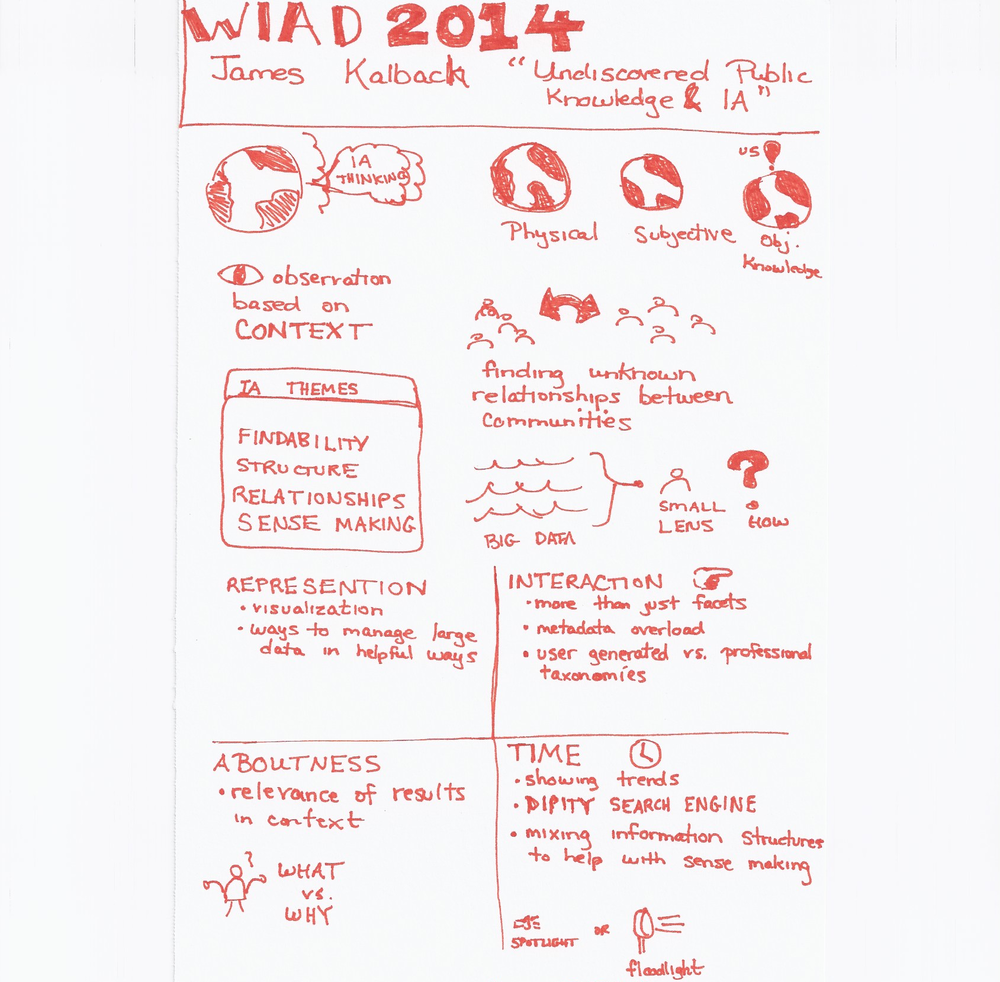 WIAD 2014
James Kalback "Undiscovered Public
Knowledge & IA"
IA
THINKING
Physical
Subjective
us
Obj.
Knowledge
observation
based on
CONTEXT
finding unknown
relationships between
communities
IA THEMES
FINDABILITY
STRUCTURE
RELATIONSHIPS
SENSE MAKING
BIG DATA
SMALL
LENS
?
HOW
REPRESENTION
• visualization
• ways to manage large
data in helpful ways
INTERACTION
• more than just facets
• metadata overload
• user generated vs. professional
taxonomies
ABOUTNESS
• relevance of results
in context
?
WHAT
vs.
WHY
TIME
• showing trends
• DIPITY SEARCH ENGINE
• mixing information structures
to help with sense making
SPOTLIGHT
OR
floodlight